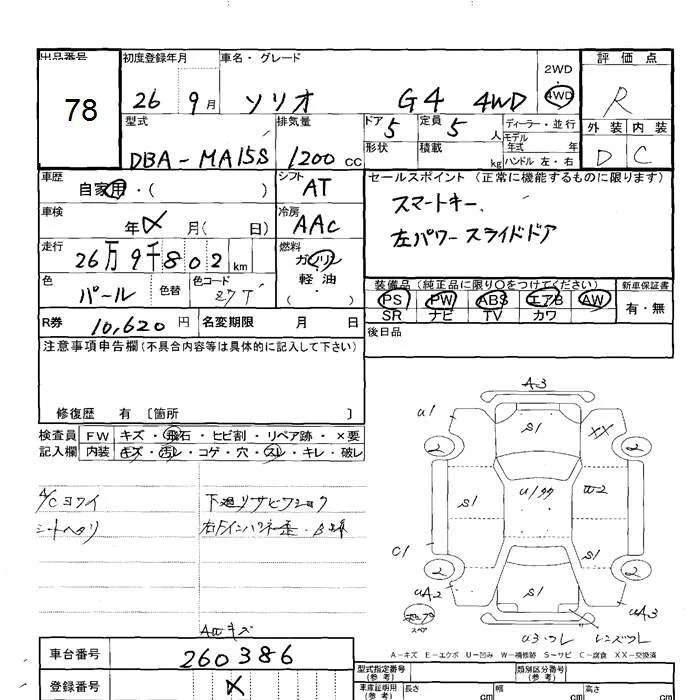 出品番号 初度登録年月 車名・グレード 2WD 4WD 評価点
78 26 9月 ソリオ G4 4WD R
型式 排気量 ドア 定員 ディーラー・並行 外装 内装
DBA-MA15S 1200cc 5 5人 モデル年式 年 D C
形状 積載 kg ハンドル 左・右
車歴 シフト セールスポイント(正常に機能するものに限ります)
自家用・( ) AT スマートキー、
車検 冷房 左パワースライドドア
年 月( 日) AAC
走行 燃料
26万9千802km ガソリン
色 色替 色コード 軽油
パール ( ・ )
装備品(純正品に限り○をつけてください) 新車保証書
PS PW ABS エアB AW 有・無
SR ナビ TV カワ
R券 10,620円 名変期限 月 日 後日品
注意事項申告欄(不具合内容等は具体的に記入して下さい)
修復歴 有 〔箇所 〕
検査員 FW キズ・飛石・ヒビ割・リペア跡・×要
記入欄 内装 キズ・汚レ・コゲ・穴・スレ・キレ・破レ
A/Cヨワイ 下廻リサビフショク
シートヘタリ
AWキズ
A3
U1 S1 XX
2 2
S1 W2
C1 S1
2 S1 2
UA2 UA3
スペア
A-キズ E-エクボ U-凹み W-補修跡 S-サビ C-腐食 XX-交換済
車台番号 260386
登録番号 ×
型式指定番号(参考) 類別区分番号(参考)
車庫証明用(参考) 長さ cm 幅 cm 高さ cm